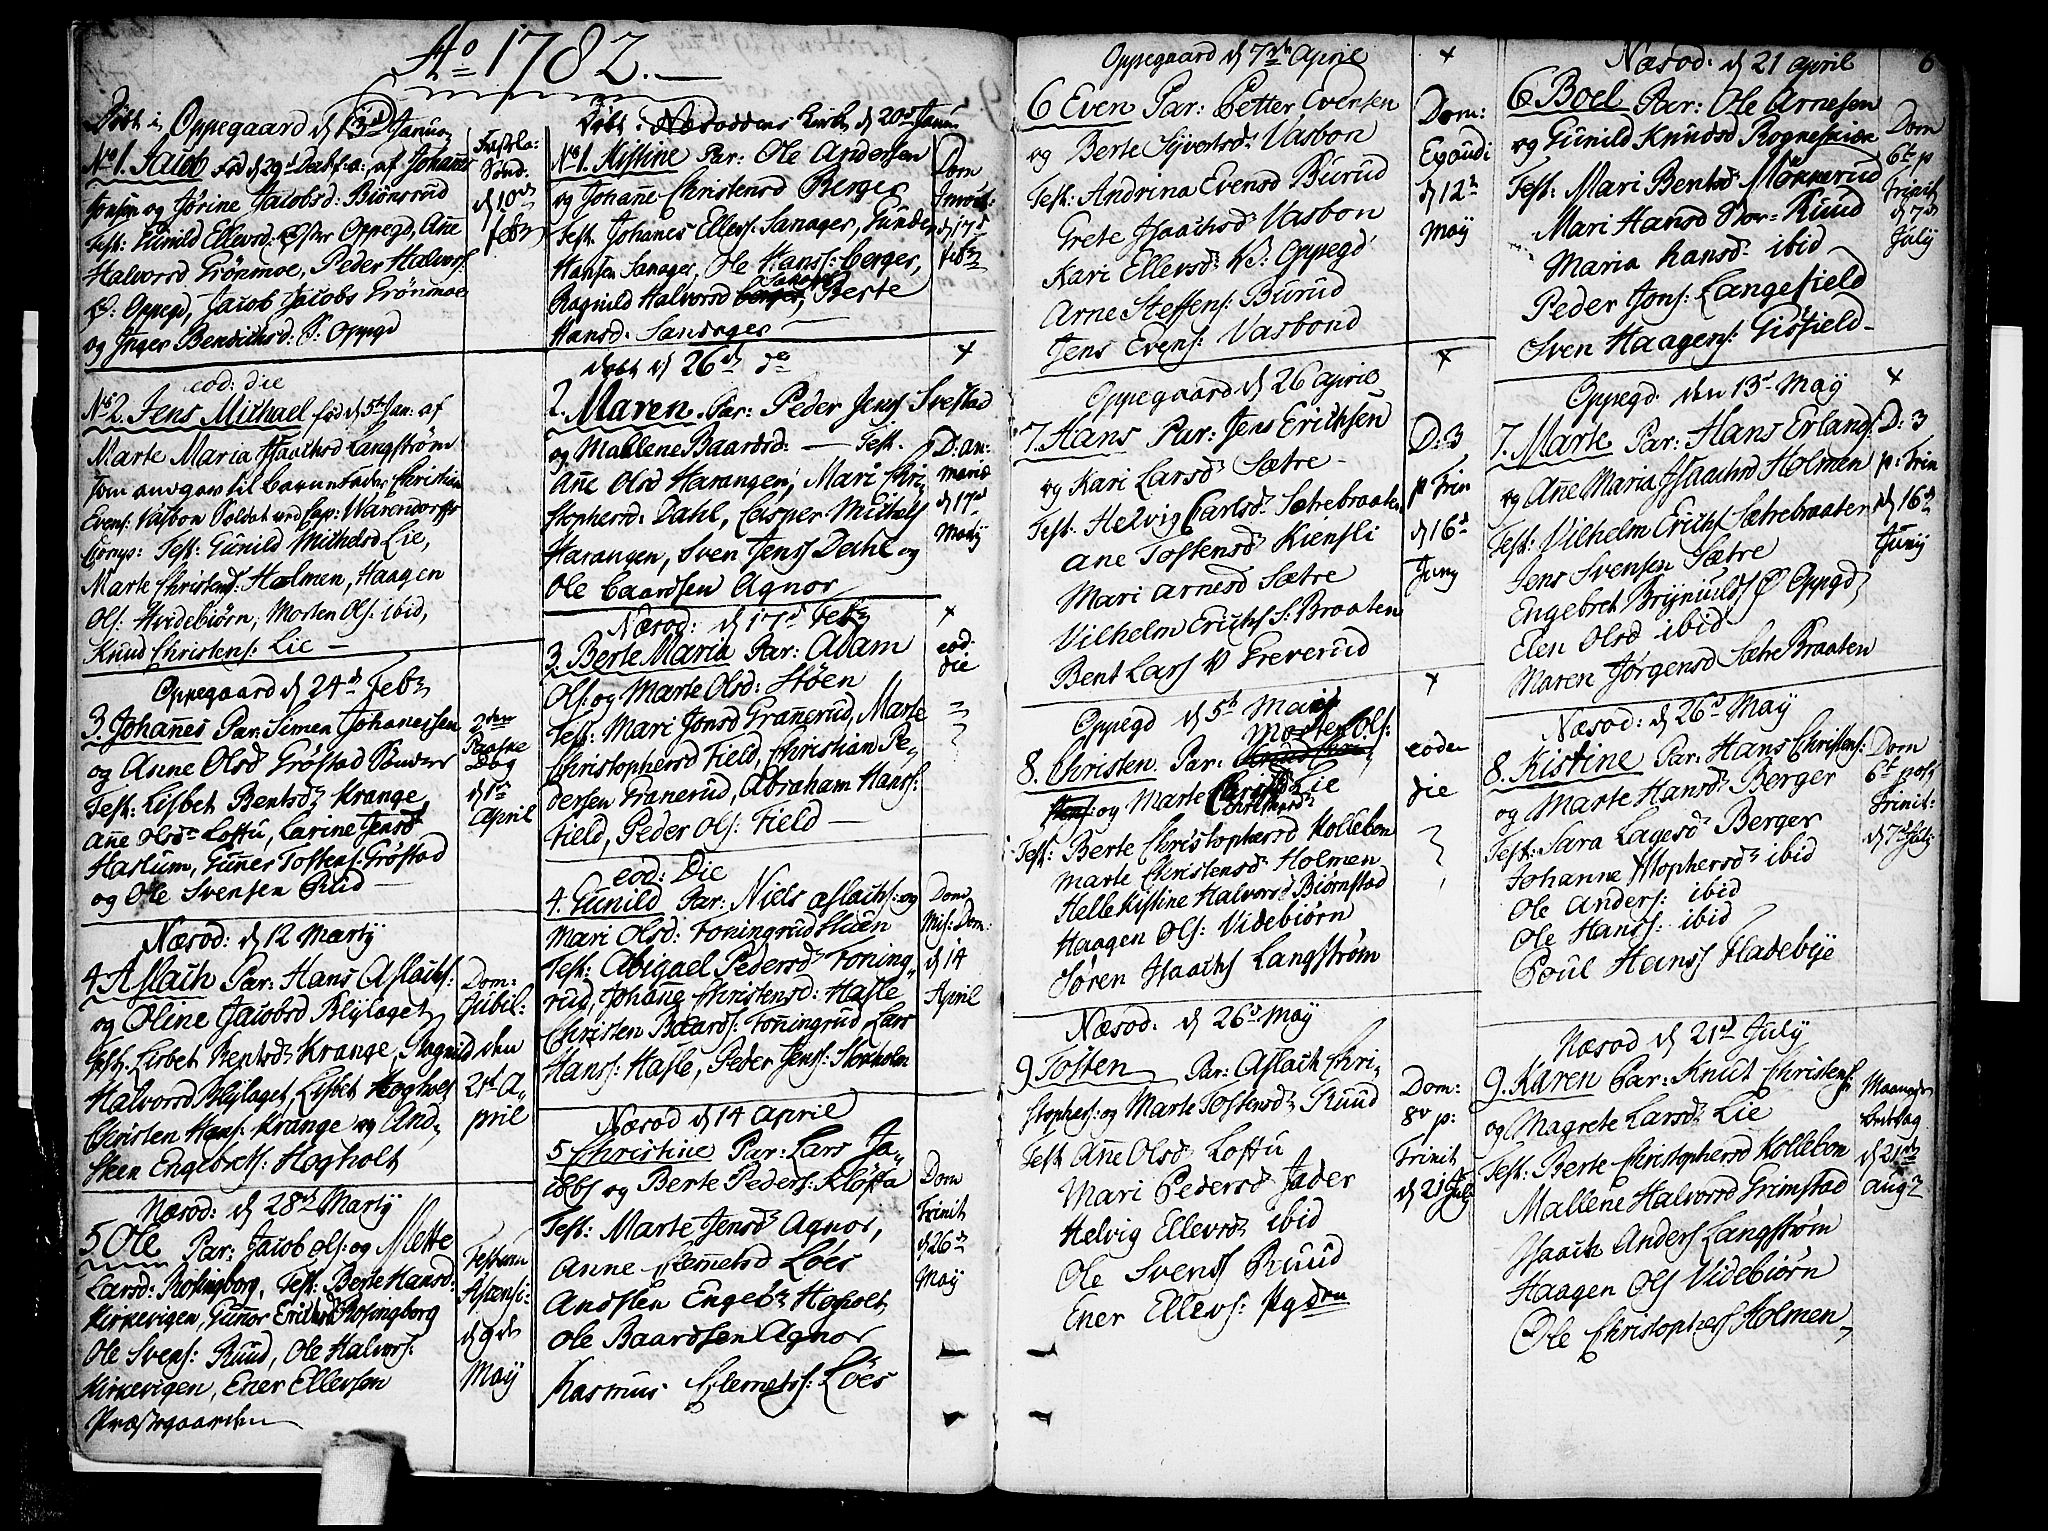 Aº 1782.
Døbt i Oppegaard d 13d Janua
No 1. Jacob fød d 29d Decbr f: a: af Johannes
Jonsen og Jørine Jacobsd: Biørnsrud
Test: Gunild Ellevsd: Øster Oppegd, Añe
Halvorsd Grønmoe, Peder Halvors:
V: Oppegd, Jacob Jacobs Grønmoe
og Inger Bendichsd: V: Oppgd
Fastela:
Sønd.
d 10d
Febr
eod: die
No 2. Jens Michael fød d 5t Jan: af
Marte Maria Isaachsd Langstrøm
som angav til barnefader Christian
Evens: Vasbon Soldat ved Cap: Warendorffs
Comp: Test: Gunild Michelsd Lie,
Marte Christensd: Holmen, Haagen
Ols: Hvidebiørn, Morten Ols: ibid,
Knud Christens: Lie
Oppegaard d 24d Febr
3. Johañes Par: Simen Johanessen
og Anne Olsd Grøstad Sønder
Test: Lisbet Bentsd: Krange
Añe Olsd: Loftu, Karine Jensd
Haslum, Guñer Tostens: Grøstad
og Ole Svensen Rud
2den
Paaske
Dag
d 1st
April
Næsod: d 12 Martij
4 Aslach Par: Hans Aslachs:
og Oline Jacobsd Blylaget
Test: Lisbet Bentsd: Krange, Ragnild
Halvorsd Blylaget, Lisbet Hogholt
Christen Hans: Krange og And,
sten Engebrets: Hogholt
Dom:
Jubil:
den
21st A,
pril
Næsod: d 28d Martij
5 Ole Par: Jacob Ols: og Mette
Larsd: Rosingborg, Test: Berte Hansd:
Kirkevigen, Guñor Erichsd Rosongborg
Ole Svens: Ruud, Ole Halvors:
Kirkevigen, Ener Ellevsen
Præstegaarden
Festum
Ascensi:
d 9de
Maij
Døbt i Næsoddens Kirke d 20d Janu
No 1. Kistine Par: Ole Andersen
og Johañe Christensd Berger
Test: Johanes Ellevs: Sanager, Gunder
Hansen Sanager, Ole Hanss: berger,
Ragnild Halvorsd Sanager, Berte
Hansd: Sandager
Dom
Invoc:
d 17d
Febr
døbt d 26d do
2. Maren Par: Peder Jens: Svestad
og Mallene Baardsd: — Test.
Añe Olsd Harangen, Mari Chri,
stophersd: Dahl, Casper Michels
Harangen, Sven Jens: Dahl og
Ole Baardsen Agnor
+
D: An:
mariæ
d 17d
Martij
Næsod: d 17d Febr
3. Berte Maria Par: Adam
Ols: og Marte Olsd: Støen
Test: Mari Jonsd Grañerud, Marte
Christophersd Field, Christian Pe,
dersen Granerud, Abraham Hanss:
Field, Peder Ols: Field
+
eod:
die
eod: Die
4. Gunild Par: Niels Aslachs: og
Mari Olsd: Toningrud Stuen
Test: Abigael Pedersd: Toning,
rud, Johañe Christensd: Hasle
Christen Baards: Toningrud, Lars
Hanss: Hasle, Peder Jens: Storholm
Dom
Mis: Dom:
d 14
April
Næsod d 14 April
5 Christine Par: Lars Ja,
cobs og Berte Peders: Kløfta
Test: Marte Jensd: Agnor,
Anne Clemetsd Løes
Andsten Engeb: Hogholt
Ole Baardsen Agnor
Rasmus Clemets: Løes
Dom
Trinit
d 26d
Maij
Oppegaard d 7de April
6 Even Par: Petter Evensen
og Berte Sivertsd: Vasbon
Test: Andrina Evensd Burud
Grete Isaachsd: Vasbon
Kari Ellevsd: V: Oppegd
Arne Steffens: Burud
Jens Evens: Vasbond
+
Dom:
Exaudi
d 12t
Maij
Oppegaard d 26 April
7. Hans Par: Jens Erichsen
og Kari Larsd: Sætre
Test: Helvig Carlsd: Sætrebraaten
Ane Tostensd: Kiensli
Mari Arnesd Sætre
Vilhelm Erichs S: Braaten
Bent Lars V Greverud
+
D: 3
p Trin
d 16d
Juny
Oppegd d 5t Maij
8. Christen Par: Morten Ols:
og Marte Christensd: Lie
Test: Berte Christophersd Kollebon
Marte Christensd: Holmen
Helle Kistine Halvorsd Biørnstad
Haagen Ols: Videbiørn
Søren Isaachs Langstrøm
+
eodem
die
Næsod: d 26d Maij
9 Tosten Par: Aslach Chri,
stophers: og Marte Tostensd: Ruud
Test Añe Olsd: Loftu
Mari Pedersd Jader
Helvig Ellevsd: ibid
Ole Svens: Ruud
Ener Ellevs: Pgden
Dom:
8v p:
Trinit
d 21 July
Næsod: d 21 April
6
6 Boel Par: Ole Arnesen
og Gunild Knudsd Rognesiæ
Test: Mari Bentsd: Mokkerud
Mari Hansd Stor-Ruud
Maria Hansd: ibid
Peder Jons: Langefield
Sven Haagens: Giøfield
Dom
6te p
Trinit
d 7d
July
Oppegd: den 13d Maij
7. Marte Par: Hans Erlands:
og Añe Maria Isaachsd Holmen
Test: Vilhelm Erichs Sætrebraaten
Jens Svensen Sætre
Engebret Brynulds Ø Oppgd,
Elen Olsd ibid
Maren Jørgensd Sætre Braaten
+
D: 3
p: Trin
d 16d
Junij
Næsod: d 26d Maij
8. Kistine Par: Hans Christens:
og Marte Hansd: Berger
Test: Sara Lagesd: Berger
Johanne Xstophersd: ibid
Ole Anders: ibid
Ole Hanss: ibid
Poul Hanss Fladebye
Dom
6t post
Trinit:
d 7d Jul:
Næsod d 21d July
9. Karen Par: Knut Christens:
og Magrete Larsd: Lie
Test: Berte Christophersd Kollebon
Mallene Halvorsd Grimstad
Isaach Anders Langstrøm
Haagen Ols Videbiørn
Ole Christophers Holmen
Maaneds
Bededag
d 21de
Aug: